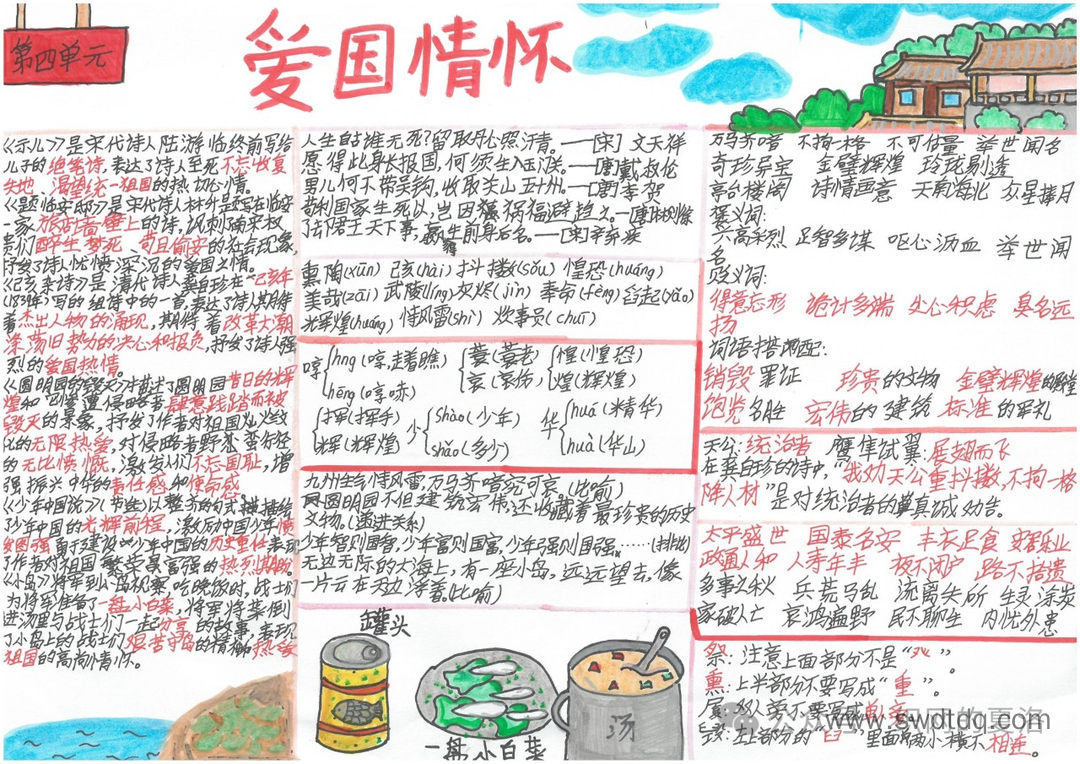 第四单元
爱国情怀
《示儿》是宋代诗人陆游临终前写给
儿子的绝笔诗,表达了诗人至死不忘收复
失地、渴望统一祖国的热切心情。
《题临安邸》是宋代诗人林升题写在临安
一家旅店墙壁上的诗,讽刺南宋权
贵们醉生梦死、苟且偷安的社会现象,
抒发了诗人忧愤深沉的爱国之情。
《己亥杂诗》是清代诗人龚自珍在"己亥年
(1839年)写的组诗中的一首,表达了诗人期待
着杰出人物的涌现,期待着改革大潮
荡旧势力的决心和报负,抒发了诗人强
烈的爱国热情。
《圆明园的毁灭》描述了圆明园昔日的光辉
煌和遭侵略者肆意践踏而被
毁灭的景象,抒发了作者对祖国灿烂文
化的无限热爱,对侵略者野蛮行径
的无比愤慨,激发人们不忘国耻,增
强振兴中华的责任感和使命感
《少年中国说》(节选)以整齐的句式,描绘
了少年中国的光辉前程,激励中国少年愤
发图强肩负建设少年中国的历史重任表现
了作者对祖国繁荣富强的热烈期盼
《小岛》将军到小岛视察,吃晚饭时,战士们
为将军准备了一盘小白菜,将军将菜倒
进汤里与战士们一起分享的故事,表现
了小岛上的战士们艰苦守岛的精神热爱
祖国的高尚情怀。
人生自古谁无死?留取丹心照汗青。——[宋]文天祥
愿得此身长报国,何须生入玉门关。——[唐]戴叔伦
男儿何不带吴钩,收取关山五十州。——[唐]李贺
苟利国家生死以,岂因祸福避趋之。——[清]林则徐
了却君王天下事,赢得生前身后名。——[宋]辛弃疾
熏陶(xūn) 己亥(hài) 抖擞(sǒu) 惶恐(huáng)
哉(zāi) 武陵(líng) 灰烬(jìn) 奉命(fèng) 舀起(yǎo)
辉煌(huáng) 恃风雷(shì) 炊事员(chuī)
哼 hng(哼,走着瞧)
hēng(哼哧)
蓑(蓑老)
哀(哀伤)
惶(惶恐)
煌(辉煌)
挥(挥手)
辉(辉煌)
少 shào(少年)
shǎo(多少)
华 huá(精华)
huà(华山)
九州生气恃风雷,万马齐喑究可哀。(比喻)
圆明园不但建筑宏伟,还收藏着最珍贵的历史
文物。(递进关系)
少年智则国智,少年富则国富,少年强则国强……(排比)
无边无际的大海上,有一座小岛,远远望去,像
一片云在天边浮着。(比喻)
罐头
一盘小白菜
汤
万马齐喑 不拘一格 不可估量 举世闻名
奇珍异宝 金璧辉煌 玲珑剔透
亭台楼阁 诗情画意 天南海北 众星捧月
褒义词:
兴高采烈 足智多谋 呕心沥血 举世闻
名
贬义词:
得意忘形 诡计多端 处心积虑 臭名远
扬
词语搭配:
销毁罪证 珍贵的文物 金璧辉煌的殿堂
饱览名胜 宏伟的建筑 标准的军礼
天公:统治者 鹰隼试翼:展翅而飞
在龚自珍的诗中,"我劝天公重抖擞,不拘一格
降人材"是对统治者的真诚劝告。
太平盛世 国泰名安 丰衣足食 安居乐业
政通人和 人寿年丰 夜不闭户 路不拾遗
多事之秋 兵荒马乱 流离失所 生灵涂炭
家破人亡 哀鸿遍野 民不聊生 内忧外患
祭:注意上面部分不是"癶"。
熏:上半部分不要写成"重"。
不要写成
上部分的"臼"里面两小横不相连。
www.swdtdq.com